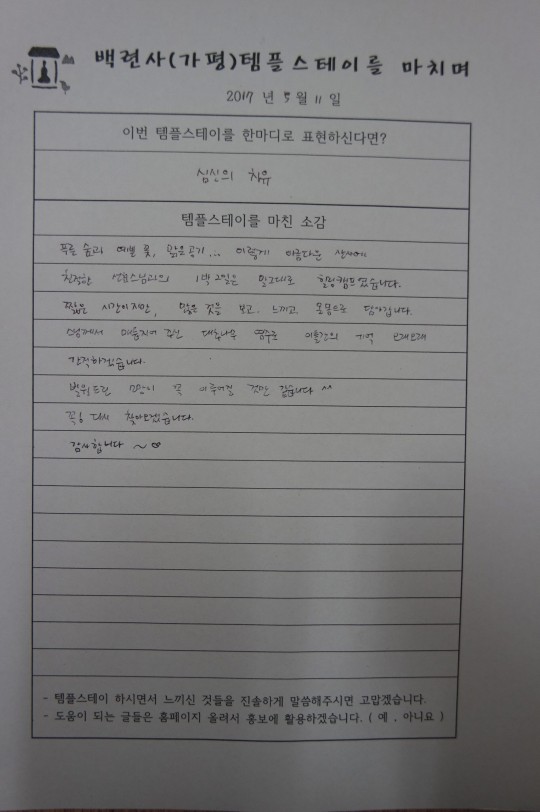 백련사(가평)템플스테이를 마치며
2017 년 5 월 11 일
이번 템플스테이를 한마디로 표현하신다면?
심신의 치유
템플스테이를 마친 소감
푸른 숲과 예쁜 꽃, 맑은공기... 이렇게 아름다운 산사에
친절한 스님과의 1박 2일은 말그대로 힐링캠프였습니다.
짧은 시간이지만, 많은 것을 보고. 느끼고 온몸으로 담아갑니다.
스님께서 매듭지어 주신 대추나무 염주로 이틀간의 기억 오래오래
간직하겠습니다.
빌워드린 소망이 꼭 이루어질 것만 같습니다 ^^
꼭 다시 찾아오겠습니다.
감사합니다 ~♡
- 템플스테이 하시면서 느끼신 것들을 진솔하게 말씀해주시면 고맙겠습니다.
- 도움이 되는 글들은 홈페이지 올려서 홍보에 활용하겠습니다. ( 예 , 아니요 )